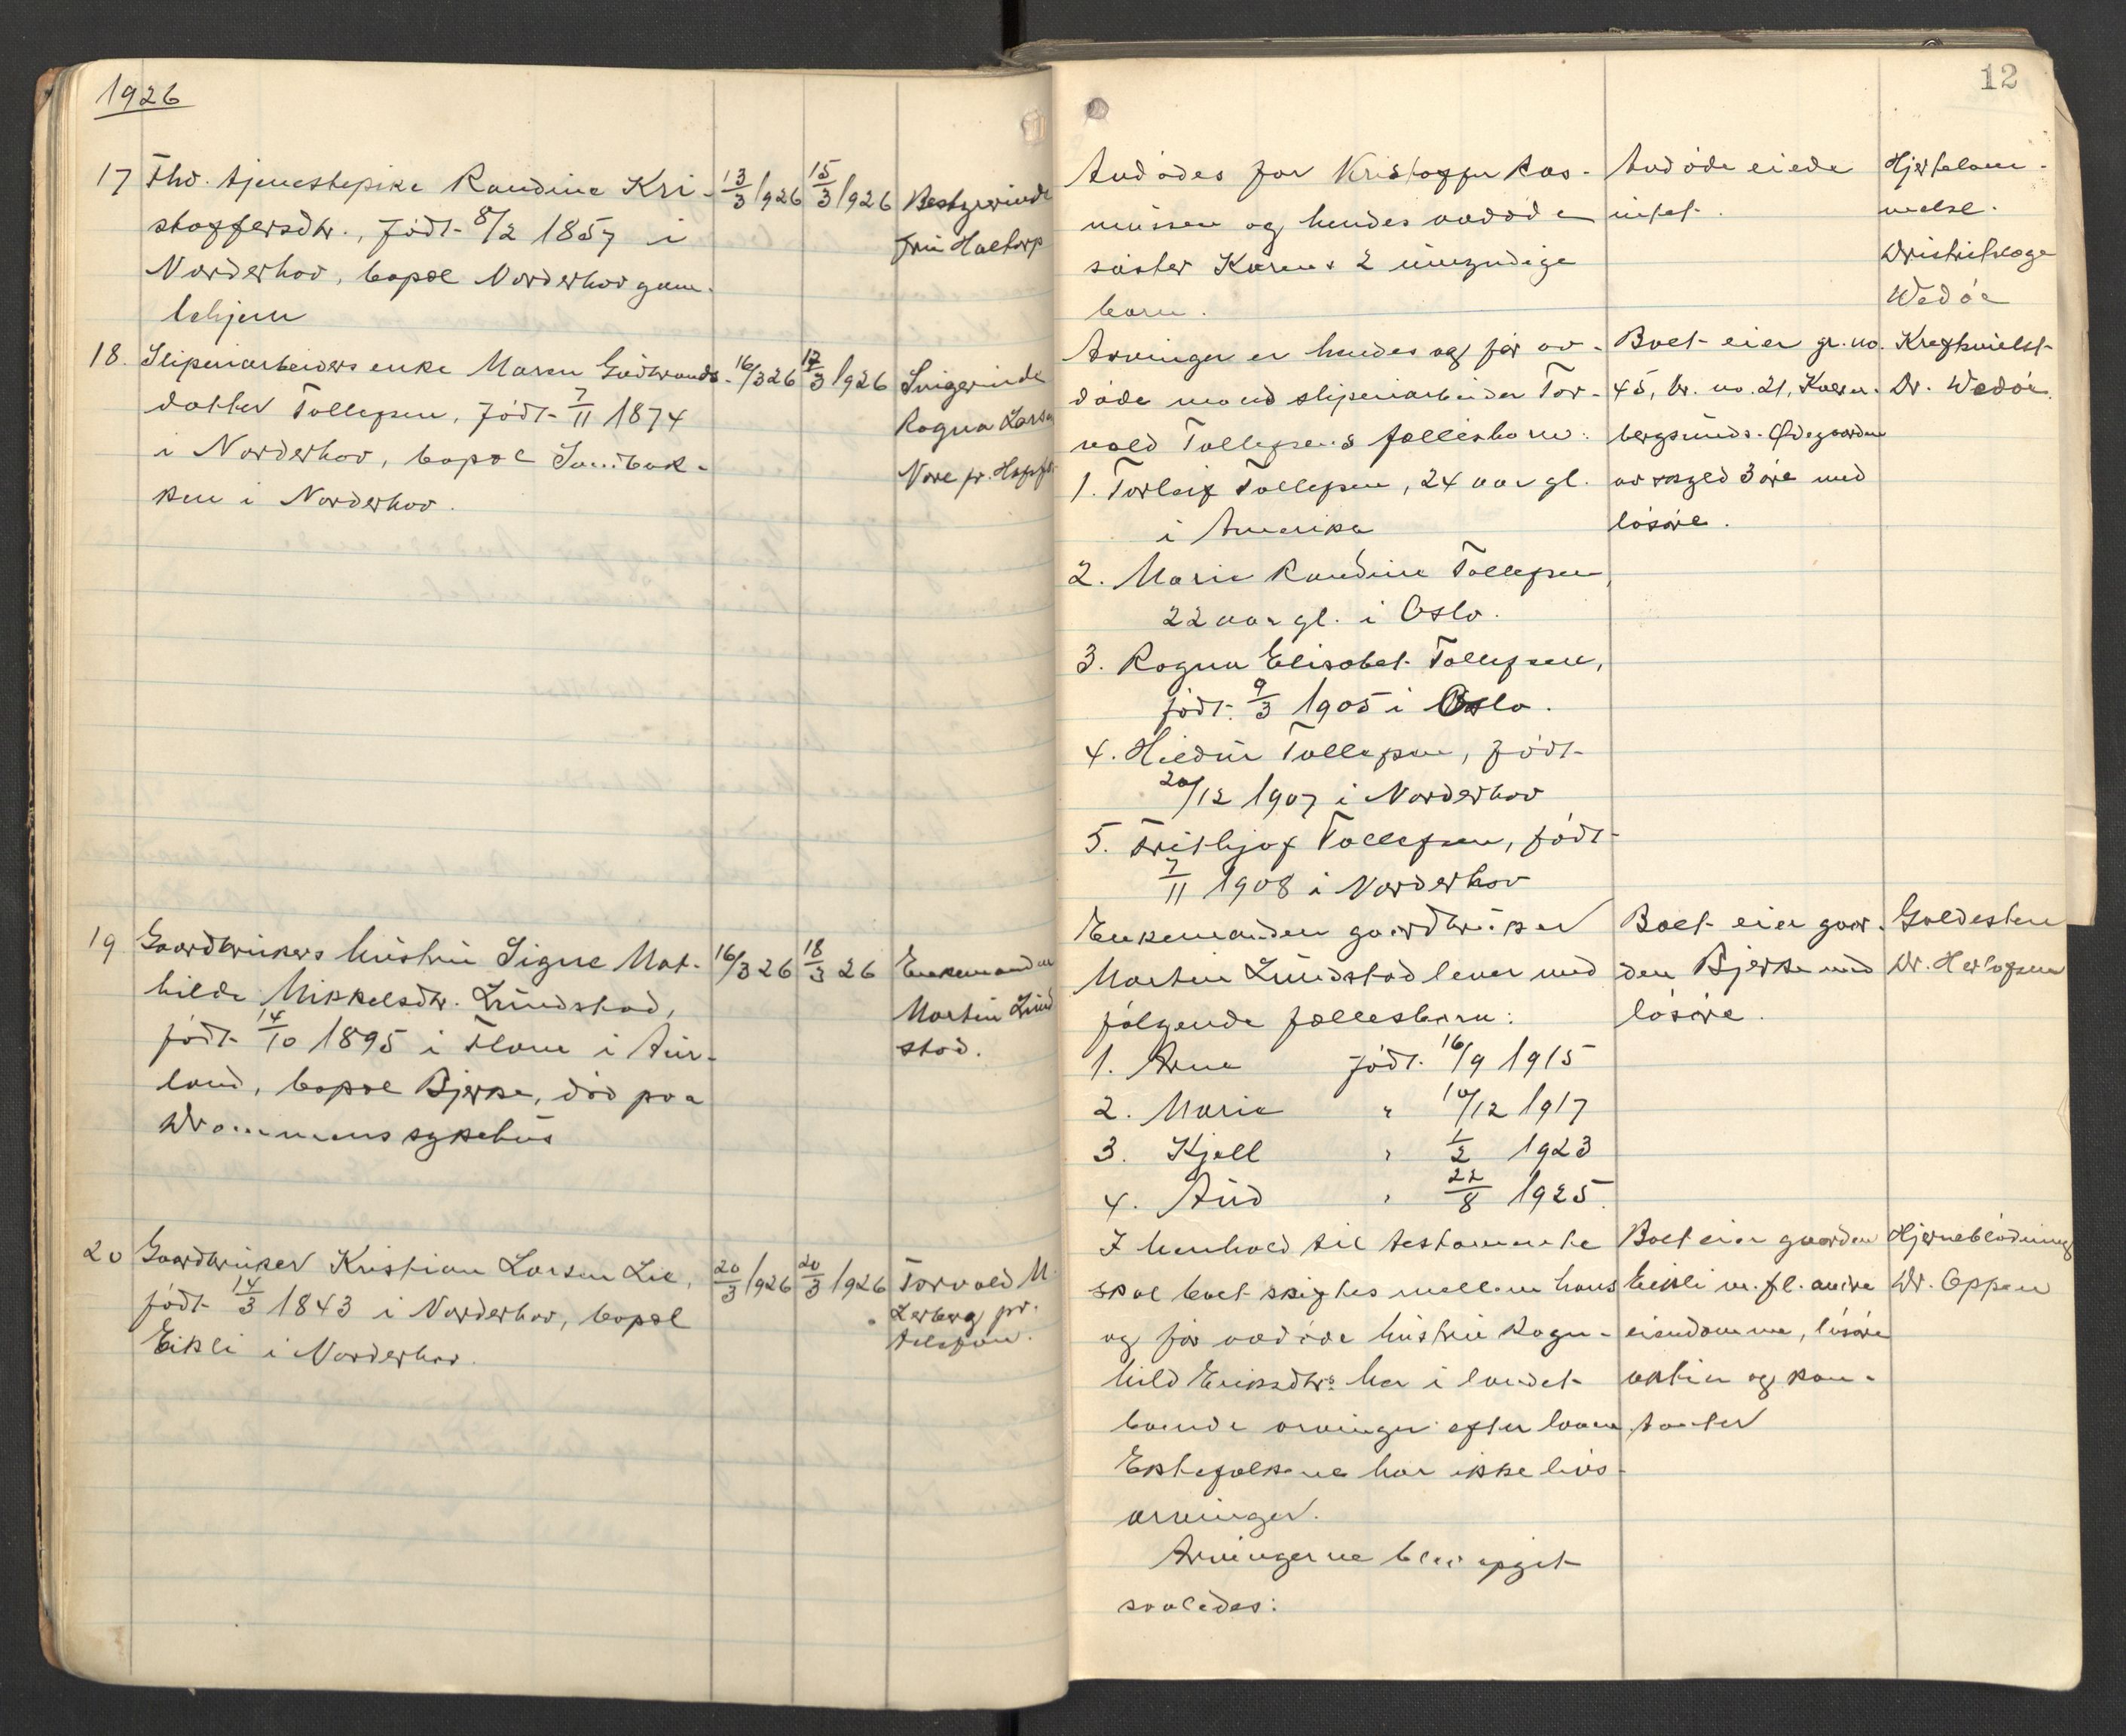 1926
12
17 Fhv. tjenestepike Randine Kri-
stoffersdtr., født 8/2 1857 i
Norderhov, bopæl Norderhov gam-
lehjem
13/3 1926
15/3 1926
Bestyrerinde
fru Haltorp
Avdødes far Kristoffer Ras-
mussen og hendes avdøde
søster Karens 2 umyndige
barn.
Avdøde eiede
intet.
Hjertelam-
melse.
Distriktslæge
Wedøe
18. Sliperiarbeiders enke Maren Gudbrands-
datter Tollefsen, født 7/11 1874
i Norderhov, bopæl Sandbak-
ken i Norderhov.
16/3 26
17/3 1926
Svigerinde
Ragna Larsen
Vore pr. Hofsfos
Arvinger er hendes og før av-
døde mand sliperiarbeider Tor-
vald Tollefsens fællesbarn:
1. Torleif Tollefsen, 24 aar gl.
i Amerika
2. Marie Randine Tollefsen,
22 aar gl. i Oslo.
3. Ragna Elisabet Tollefsen,
født 9/3 1905 i Oslo.
4. Hildur Tollefsen, født
20/12 1907 i Norderhov
5. Frithjof Tollefsen, født
7/11 1908 i Norderhov
Boet eier gr. no.
45, br. no. 21,
bergsunds-Ødegaarden
av skyld 3 øre med
løsøre.
Kræftsvulst
Dr. Wedøe.
19 Gaardbrukers hustru Signe Mat-
hilde Mikkelsdtr. Lundstad,
født 14/10 1895 i Flam i Aur-
land, bopæl Bjerke, død paa
Drammens sykehus
16/3 26
18/3 26
Enkemanden
Martin Lund
stad.
Enkemanden gaardbruker
Martin Lundstad lever med
følgende fællesbarn:
1. Arne født 16/9 1915
2. Marie " 10/12 1917
3. Kjell " 1/2 1923
4. Aud " 22/8 1925.
Boet eier gaar-
den Bjerke med
løsøre.
Galdesten
Dr. Herlofsen
20 Gaardbruker Kristian Larsen Lie,
født 14/3 1843 i Norderhov, bopæl
Eikli i Norderhov.
20/3 1926
20/3 1926
Torvald M.
Lerberg pr.
telefon.
I henhold til testamente
skal boet skiftes mellem hans
og før avdøde hustru Ragn-
hild Eriksdtrs her i landet
boende arvinger efter loven.
Ektefolkene har ikke livs-
arvinger.
Arvingerne blev opgit
saaledes:
Boet eier gaarden
Eikli m. fl. andre
eiendomme, løsøre
aktier og kon-
tanter
Hjerneblødning
Dr. Oppen